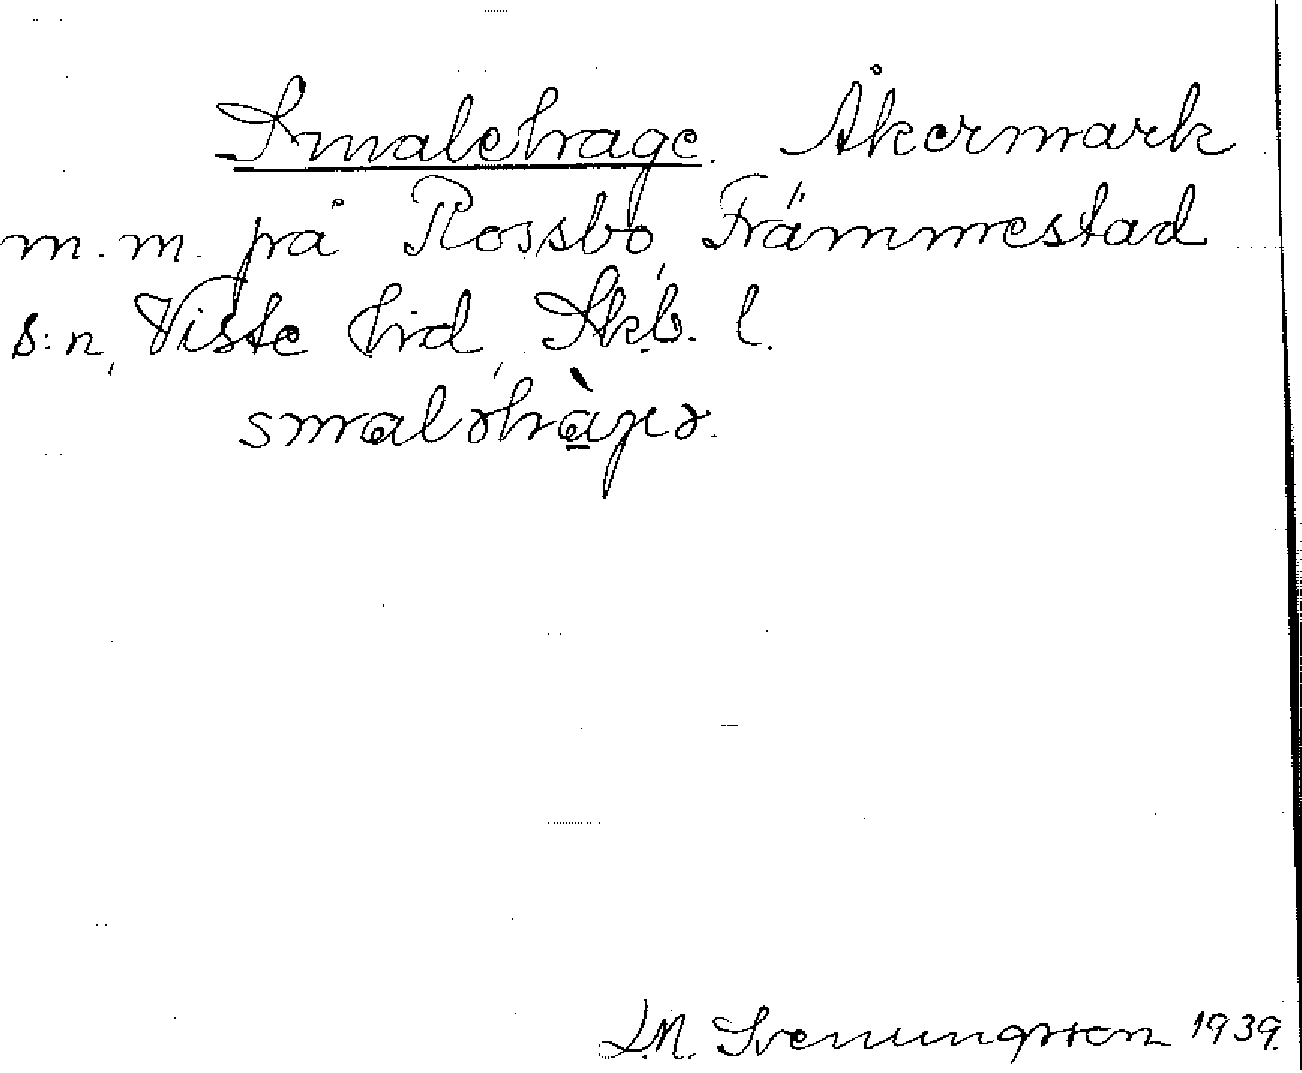 Smalehage. Åkermark
m.m. på Rossbo, Främmestad
s:n, Viste hrd, Skb. l.
smaləhàgə.
L.M. Svenungsson 1939.